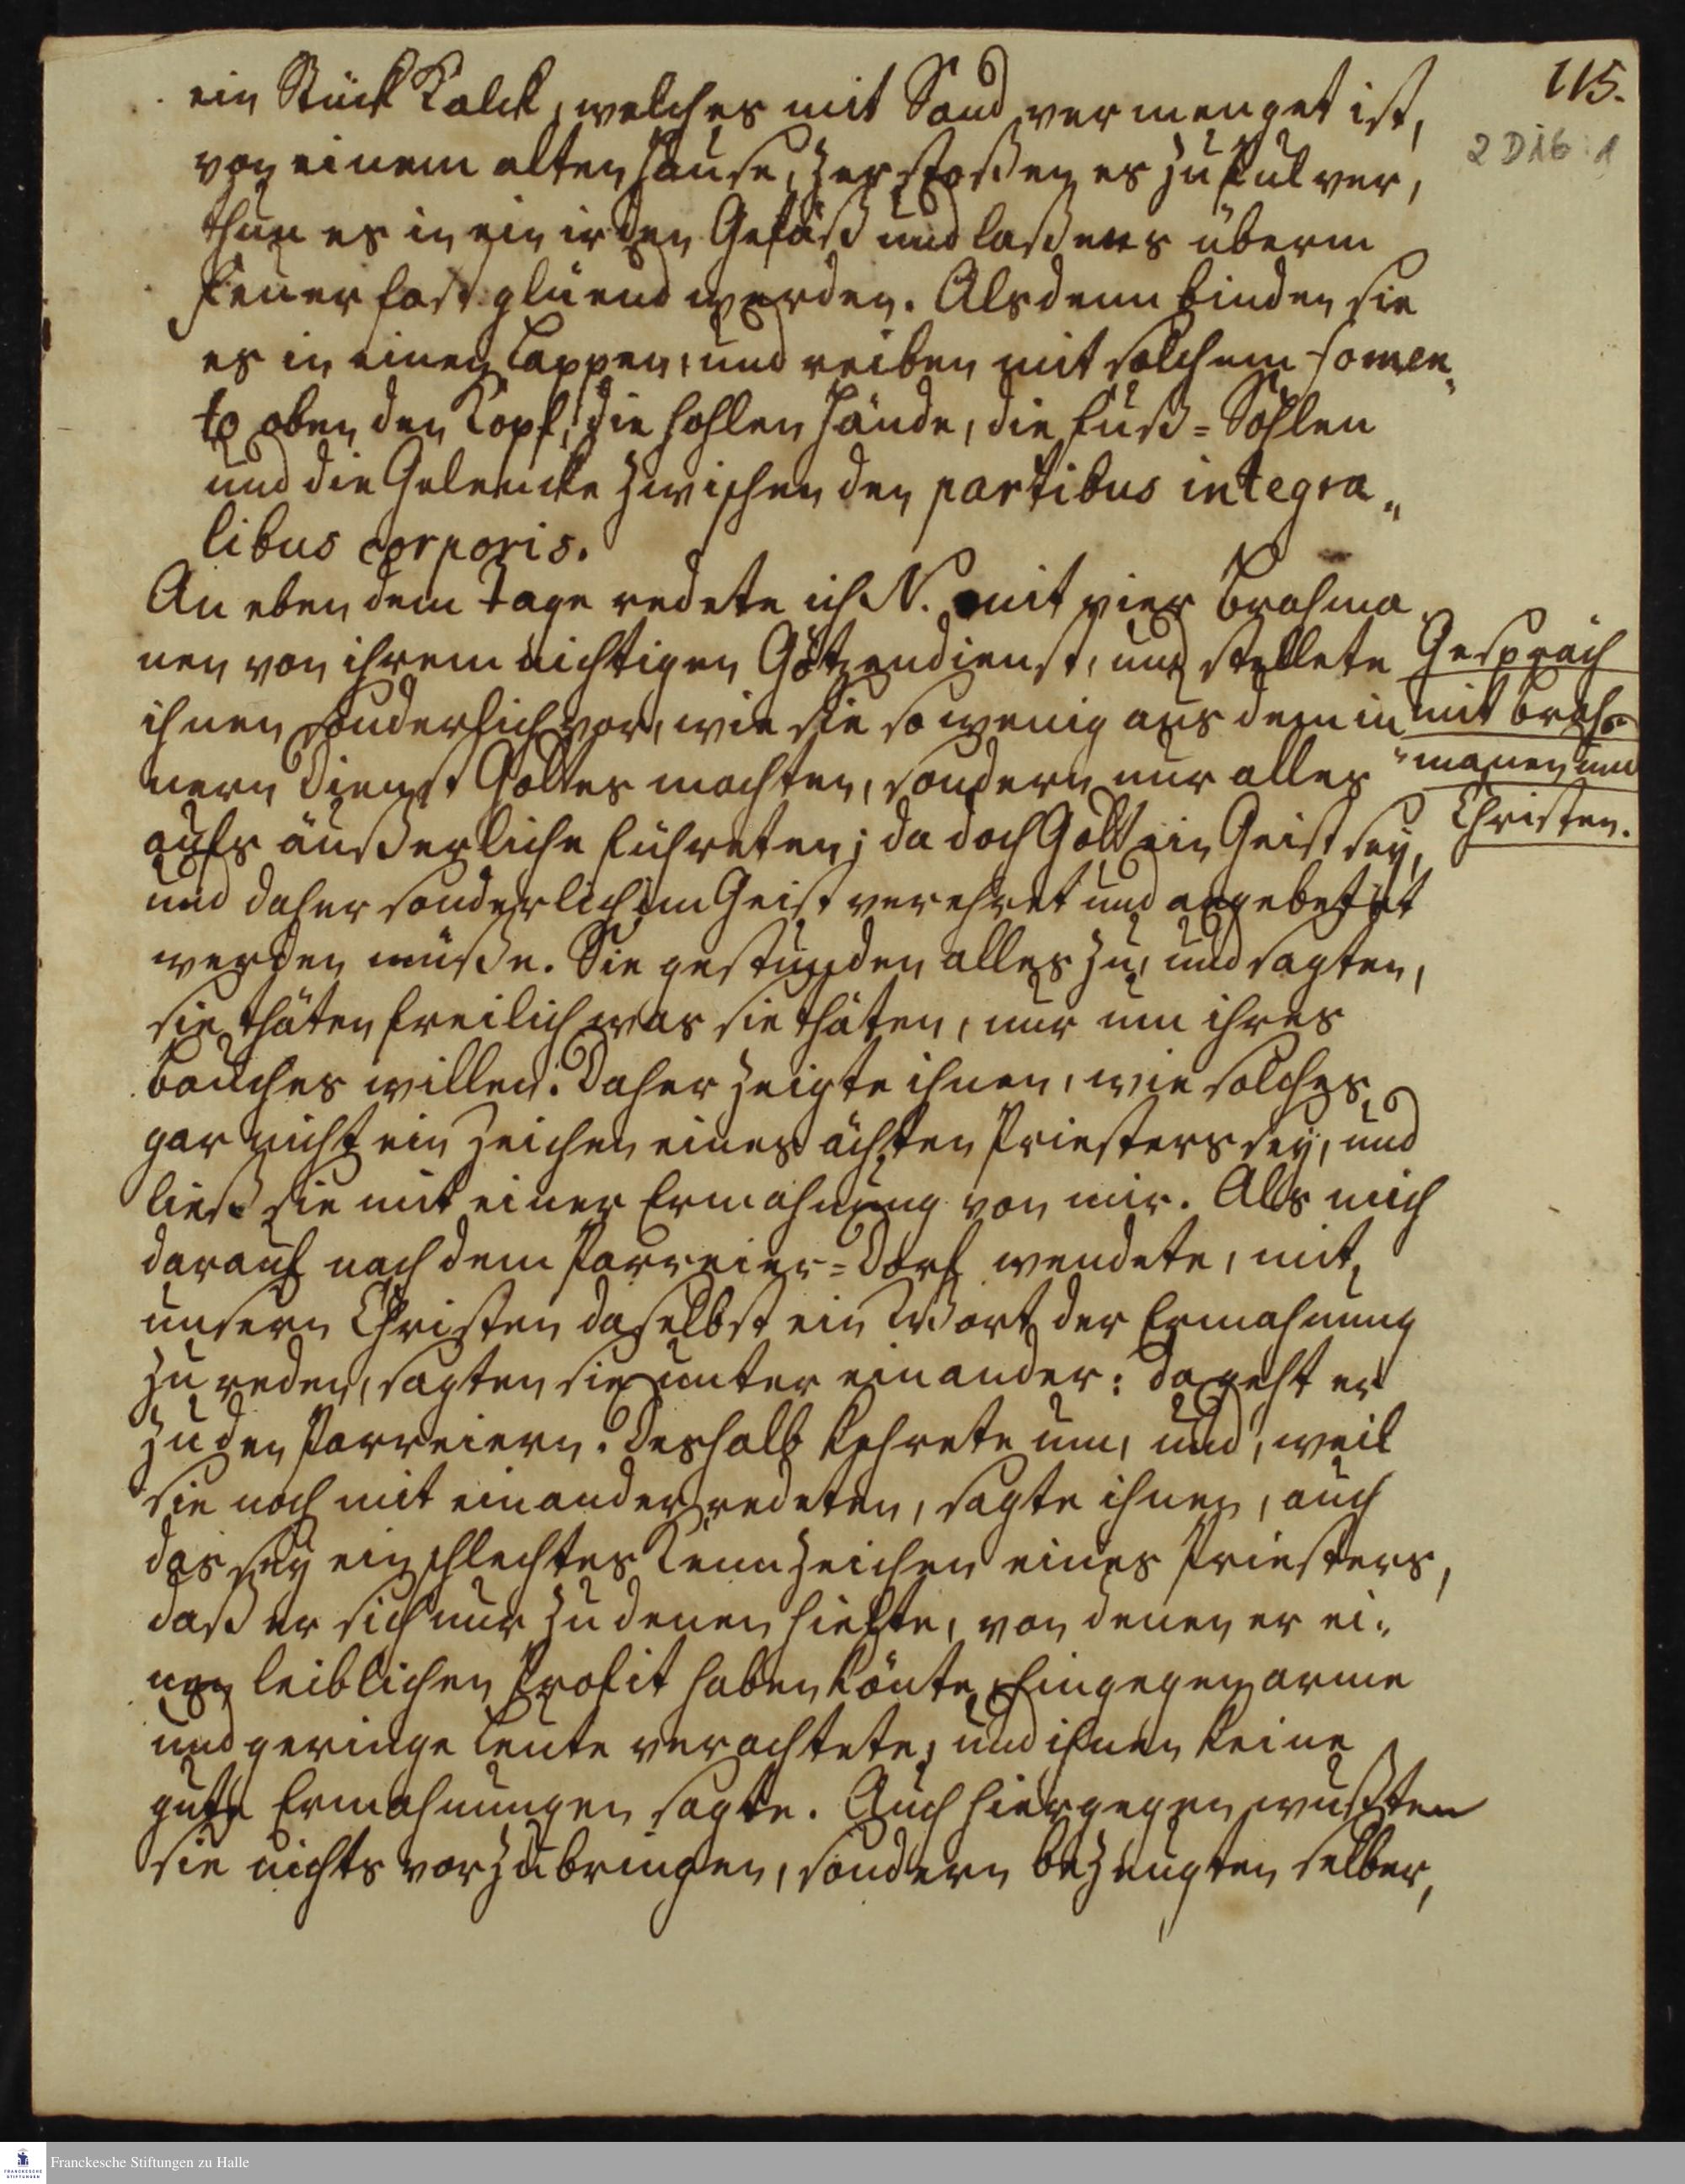 115.
2 D16 : 1
ein Stück Kalck, welches mit Sand vermenget ist,
von einem alten Hause, zerstoßen es zu Pulver,
thun es in ein irden Gefäß und laßen es überm
Feuer fast glüend werden. Alsdenn binden sie
es in einen Lappen, und reiben mit solchem fomen„
to oben den Kopf, die hohlen Hände, die Fuß=Sohlen
und die Gelencke zwischen den partibus integra„
libus corporis.
An eben dem Tage redete ich N. mit vier Brahma
nen von ihrem nichtigen Götzendienst, und stellete
ihnen sonderlich vor, wie sie so wenig aus dem in
nern Dienst Gottes machten, sondern nur alles
aufs äußerliche führeten; da doch Gott ein Geist sey,
und daher sonderlich im Geist verehret und angebetet
werden müße. Sie gestunden alles zu, und sagten,
sie thäten freilich was sie thäten, nur um ihres
Bauches willen. Daher zeigte ihnen, wie solches
gar nicht ein Zeichen eines ächten Priesters sey, und
ließ sie mit einer Ermahnung von mir. Als mich
darauf nach dem Parreier=Dorf wendete, mit
unsern Christen daselbst ein Wort der Ermahnung
zu reden, sagten sie unter einander: da geht er
zu den Parreiern. Deshalb kehrete um, und, weil
sie noch mit einander redeten, sagte ihnen, auch
das sey ein schlechtes Kennzeichen eines Priesters,
daß er sich nur zu denen hielte, von denen er ei„
nen leiblichen Profit haben könte, hingegen arme
und geringe Leute verachtete, und ihnen keine
gute Ermahnungen sagte. Auch hiergegen wußten
sie nichts vorzubringen, sondern bezeugten selber,
Gespräch
mit Brah=
„manen und
Christen.
Franckesche Stiftungen zu Halle
FRANCKESCHE
STIFTUNGEN